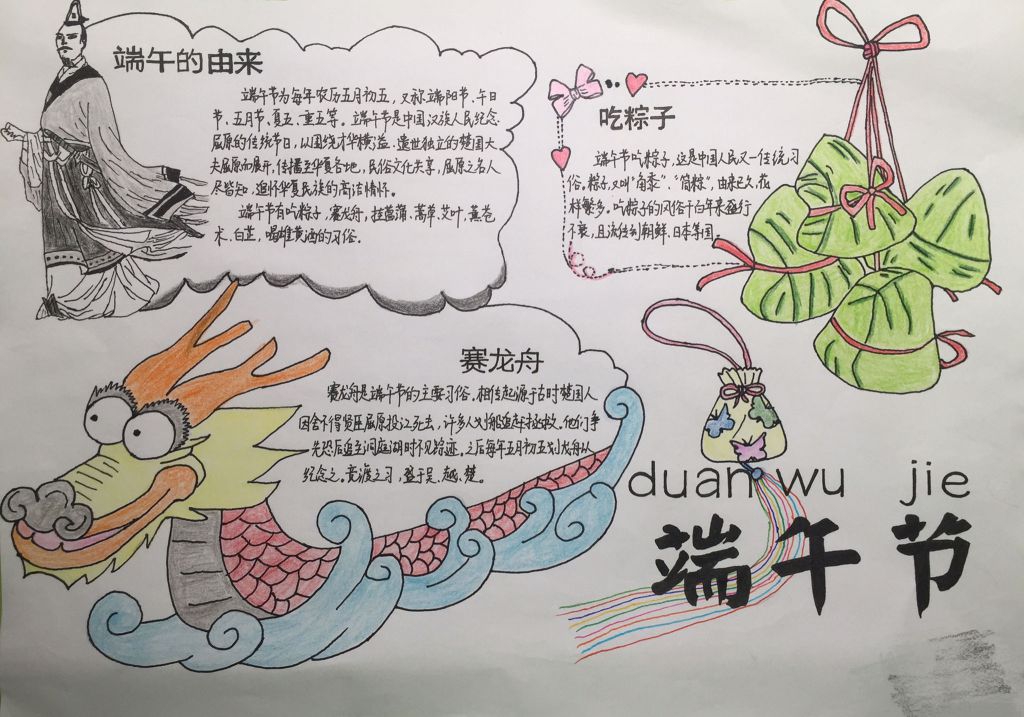 端午的由来
端午节为每年农历五月初五，又称端阳节、午日
节、五月节、夏五、重五等。端午节是中国汉族人民纪念
屈原的传统节日，以围绕才华横溢、遗世独立的楚国大
夫屈原而展开，传播至华夏各地，民俗文化共享，屈原之名人
尽皆知，追怀华夏民族的高洁情怀。
端午节有吃粽子，赛龙舟，挂菖蒲、蒿草、艾叶，薰苍
术、白芷，喝雄黄酒的习俗。
吃粽子
端午节吃粽子，这是中国人民又一传统习
俗。粽子，又叫“角黍”、“筒粽”，由来已久，花
样繁多。吃粽子的风俗千百年来盛行
不衰，且流传到朝鲜、日本等国。
赛龙舟
赛龙舟是端午节的主要习俗。相传起源于古时楚国人
因舍不得贤臣屈原投江死去，许多人划船追赶拯救。他们争
先恐后追至洞庭湖时不见踪迹。之后每年五月初五划龙舟以
纪念之。竞渡之习，盛于吴、越、楚。
duan wu jie
端午节